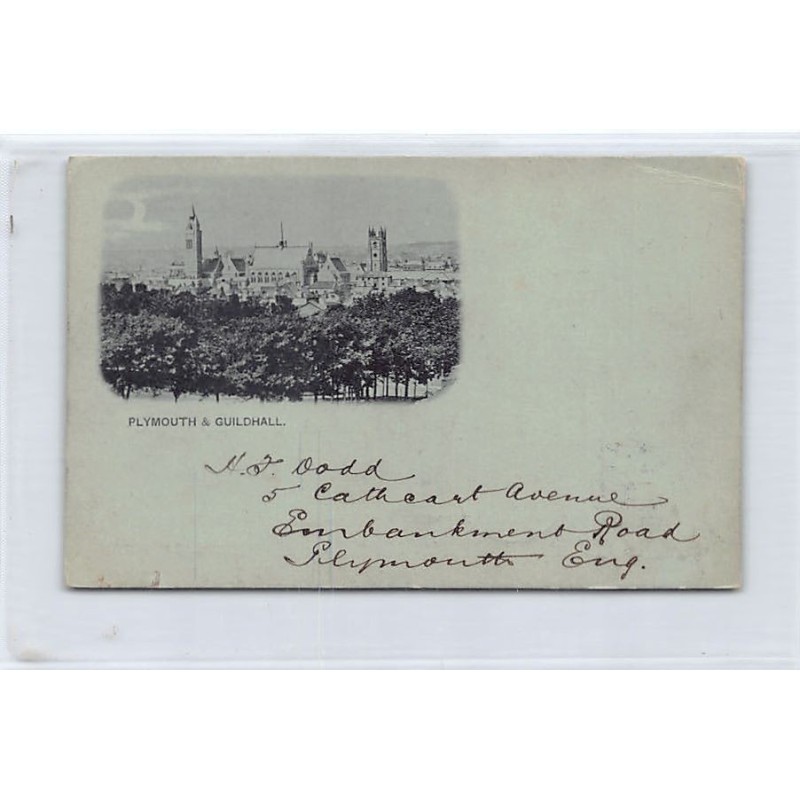 PLYMOUTH & GUILDHALL.
H. F. Dodd
5 Cathcart Avenue
Embankment Road
Plymouth Eng.